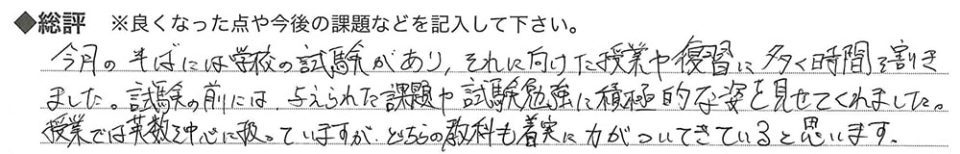 ◆総評 ※良くなった点や今後の課題などを記入して下さい。
今月の半ばには学校の試験があり、それに向けた授業や復習に多く時間を割き
ました。試験の前には、与えられた課題や試験勉強に積極的な姿を見せてくれました。
授業では英数を中心に扱っていますが、どちらの教科も着実に力がついてきていると思います。